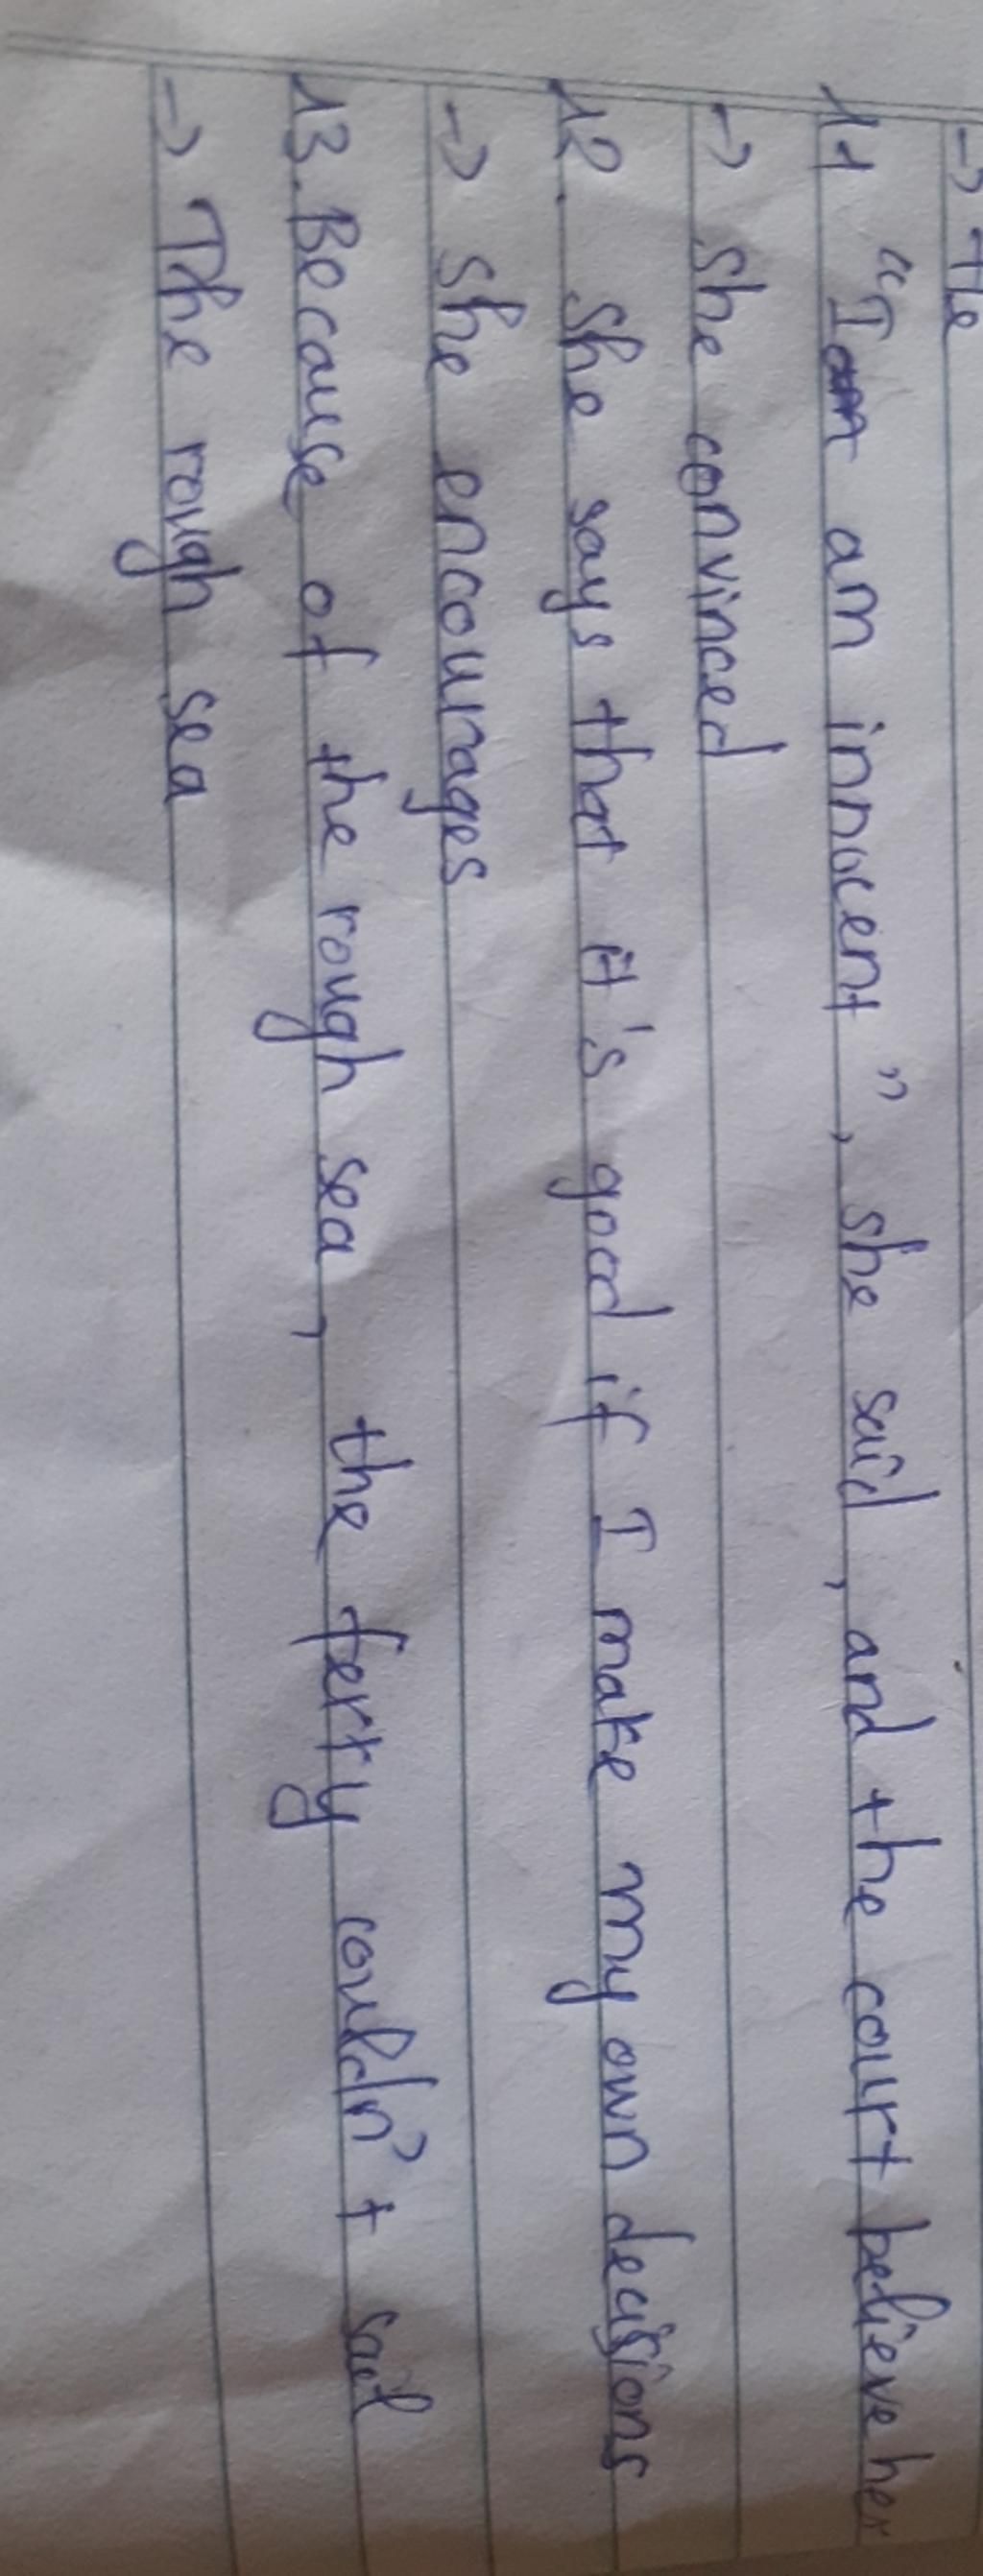 → He
11 "I am an innocent", she said, and the court believe her
→ She convinced
12. She says that it's good if I make my own decisions
→ She encourages
13. Because of the rough sea, the ferry couldn't sail
→ The rough sea